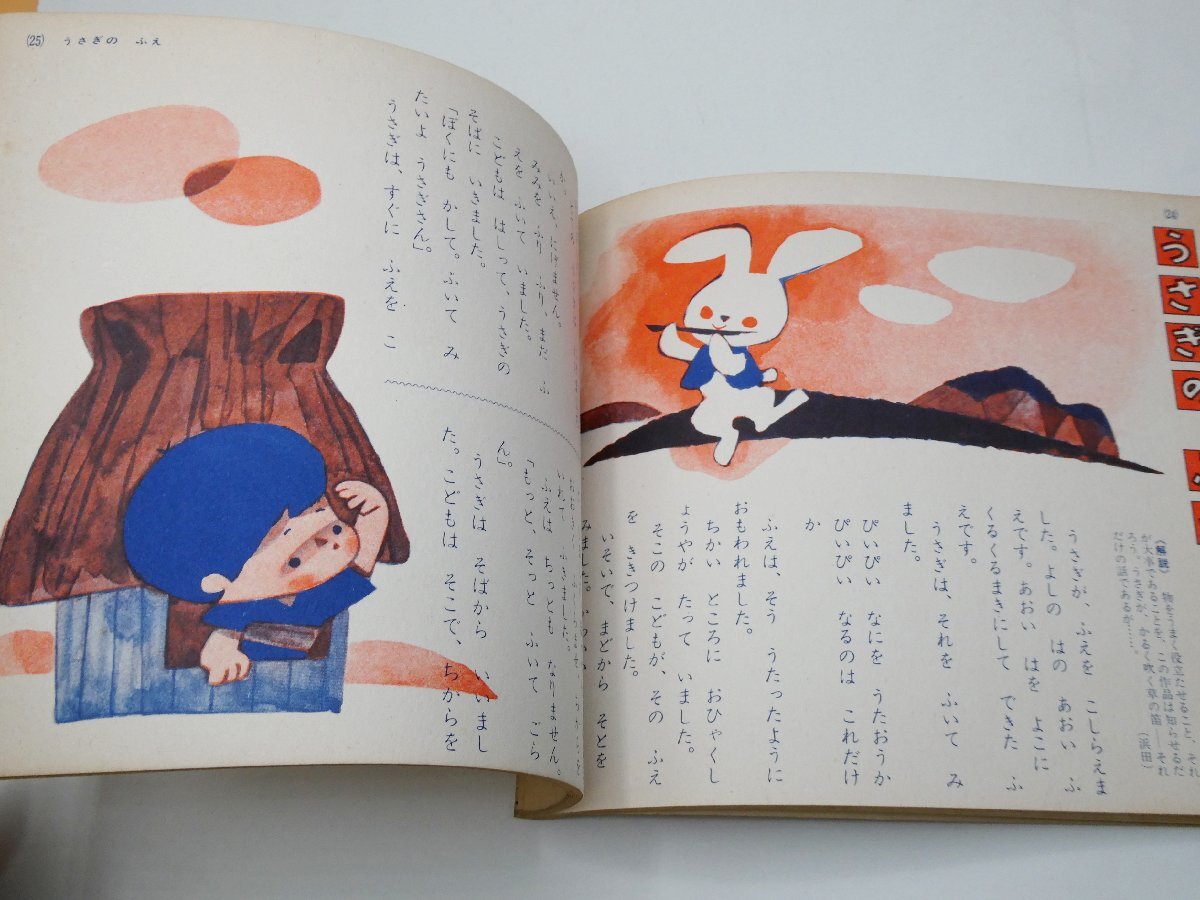 (24)
うさぎの
〈解説〉 物をうまく役立たせること、それ
が大事であることを、この作品は知らせるだ
ろう。うさぎが、かるく吹く草の笛――それ
だけの話であるが……。
(浜田)
うさぎが、ふえを こしらえま
した。よしの はの あおい ふ
えです。あおい はを よこに
くるくるまきにして できた ふ
えです。
うさぎは、それを ふいて み
ました。
ぴいぴい なにを うたおうか
ぴいぴい なるのは これだけ
か
ふえは、そう うたったように
おもわれました。
ちかい ところに おひゃくし
ょうやが たって いました。
そこの こどもが、その ふえ
を ききつけました。
いそいで、まどから そとを
みました。
(25) うさぎの ふえ
いいえ、にげません。
みみを ふり ふり、まだ ふ
えを ふいて いました。
こどもは はしって、うさぎの
そばに いきました。
「ぼくにも かして。ふいて み
たいよ うさぎさん」。
うさぎは、すぐに ふえを こ
ふえは ちっとも なりません。
「もっと、そっと ふいて ごら
ん」。
うさぎは そばから いいまし
た。こどもは そこで、ちからを